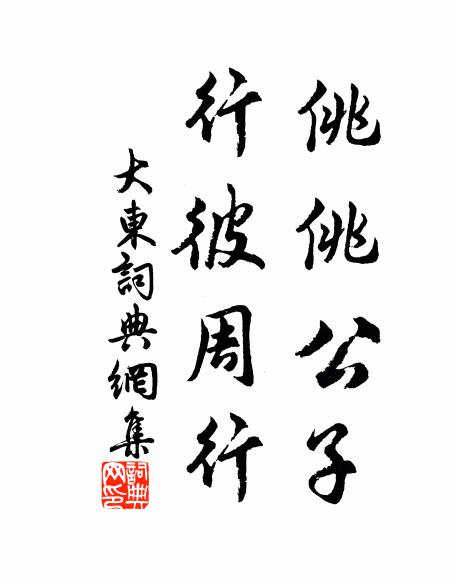 佻佻公子
行彼周行
大東詞典網集
詞典
网印